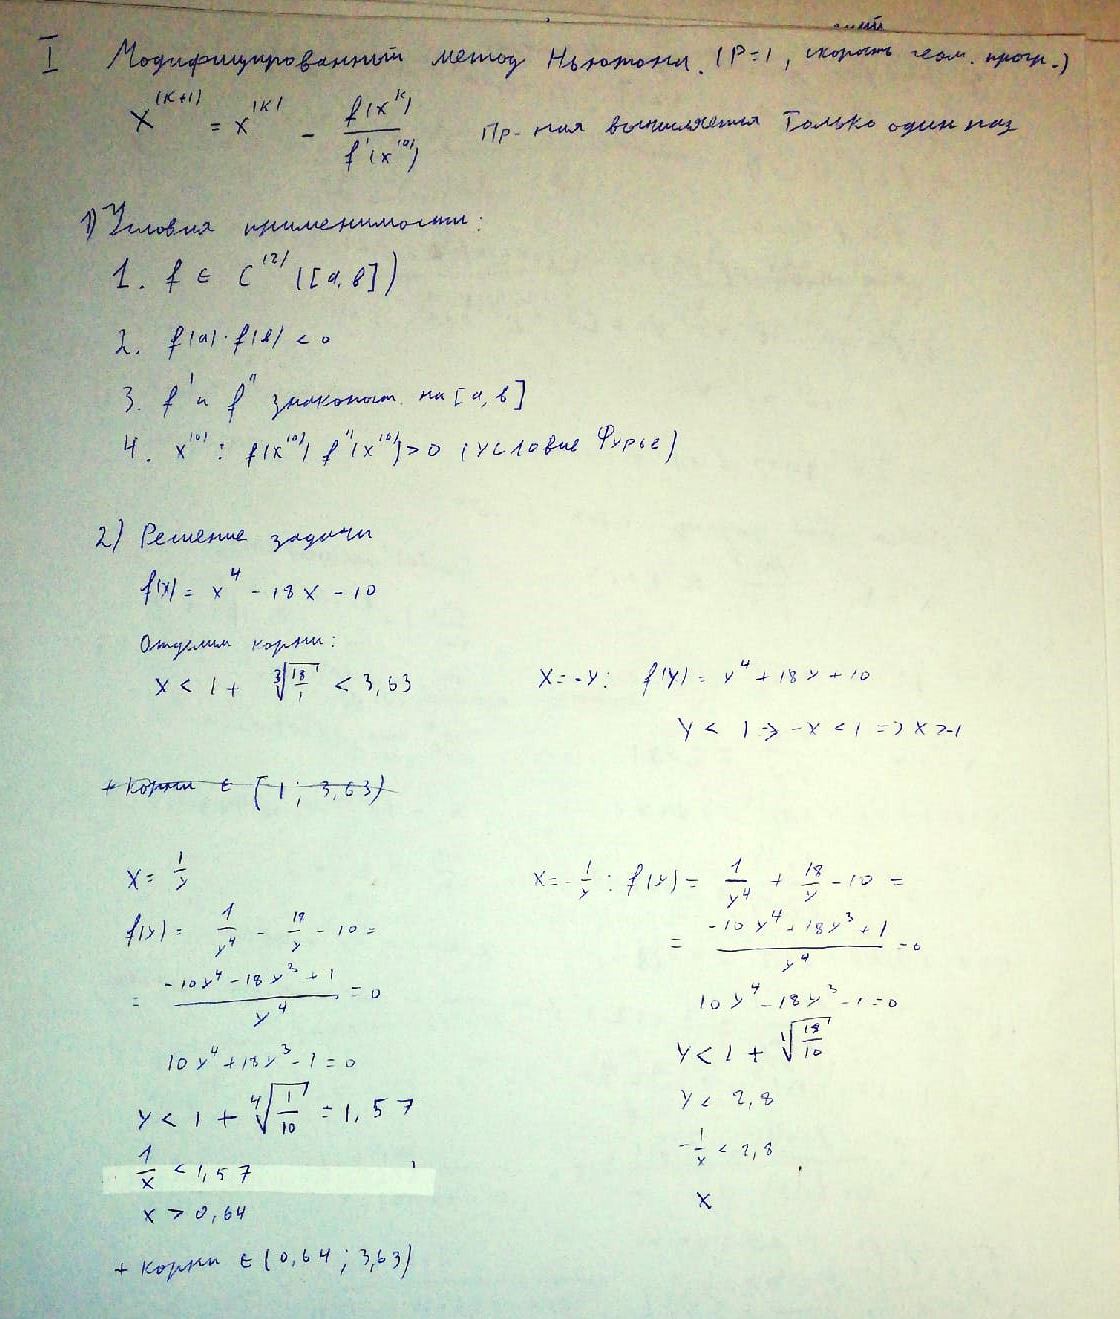 I Модифицированный метод Ньютона. (P=1, скорость геом. прогр.)
x^(k+1) = x^(k) - f(x^k) / f'(x^(0)) Пр-ная вычисляется только один раз
1) Условия применимости:
1. f ∈ C^(2) ([a,b])
2. f(a)·f(b) < 0
3. f' и f'' знакопост. на [a,b]
4. x^(0): f(x^(0)) f''(x^(0)) > 0 (условие Фурье)
2) Решение задачи
f(x) = x^4 - 18x - 10
Отделим корни:
x < 1 + ∛(18/1) < 3,63
x = -y: f(y) = y^4 + 18y + 10
y < 1 => -x < 1 => x > -1
+ корни ∈ (1; 3,63)
x = 1/y
f(y) = 1/y^4 - 18/y - 10 =
= (-10y^4 - 18y^3 + 1) / y^4 = 0
10y^4 + 18y^3 - 1 = 0
y < 1 + ∜(1/10) = 1,57
1/x < 1,57
x > 0,64
+ корни ∈ (0,64; 3,63)
x = -1/y: f(y) = 1/y^4 + 18/y - 10 =
= (-10y^4 + 18y^3 + 1) / y^4 = 0
10y^4 - 18y^3 - 1 = 0
y < 1 + ¹√(18/10)
y < 2,8
-1/x < 2,8
x